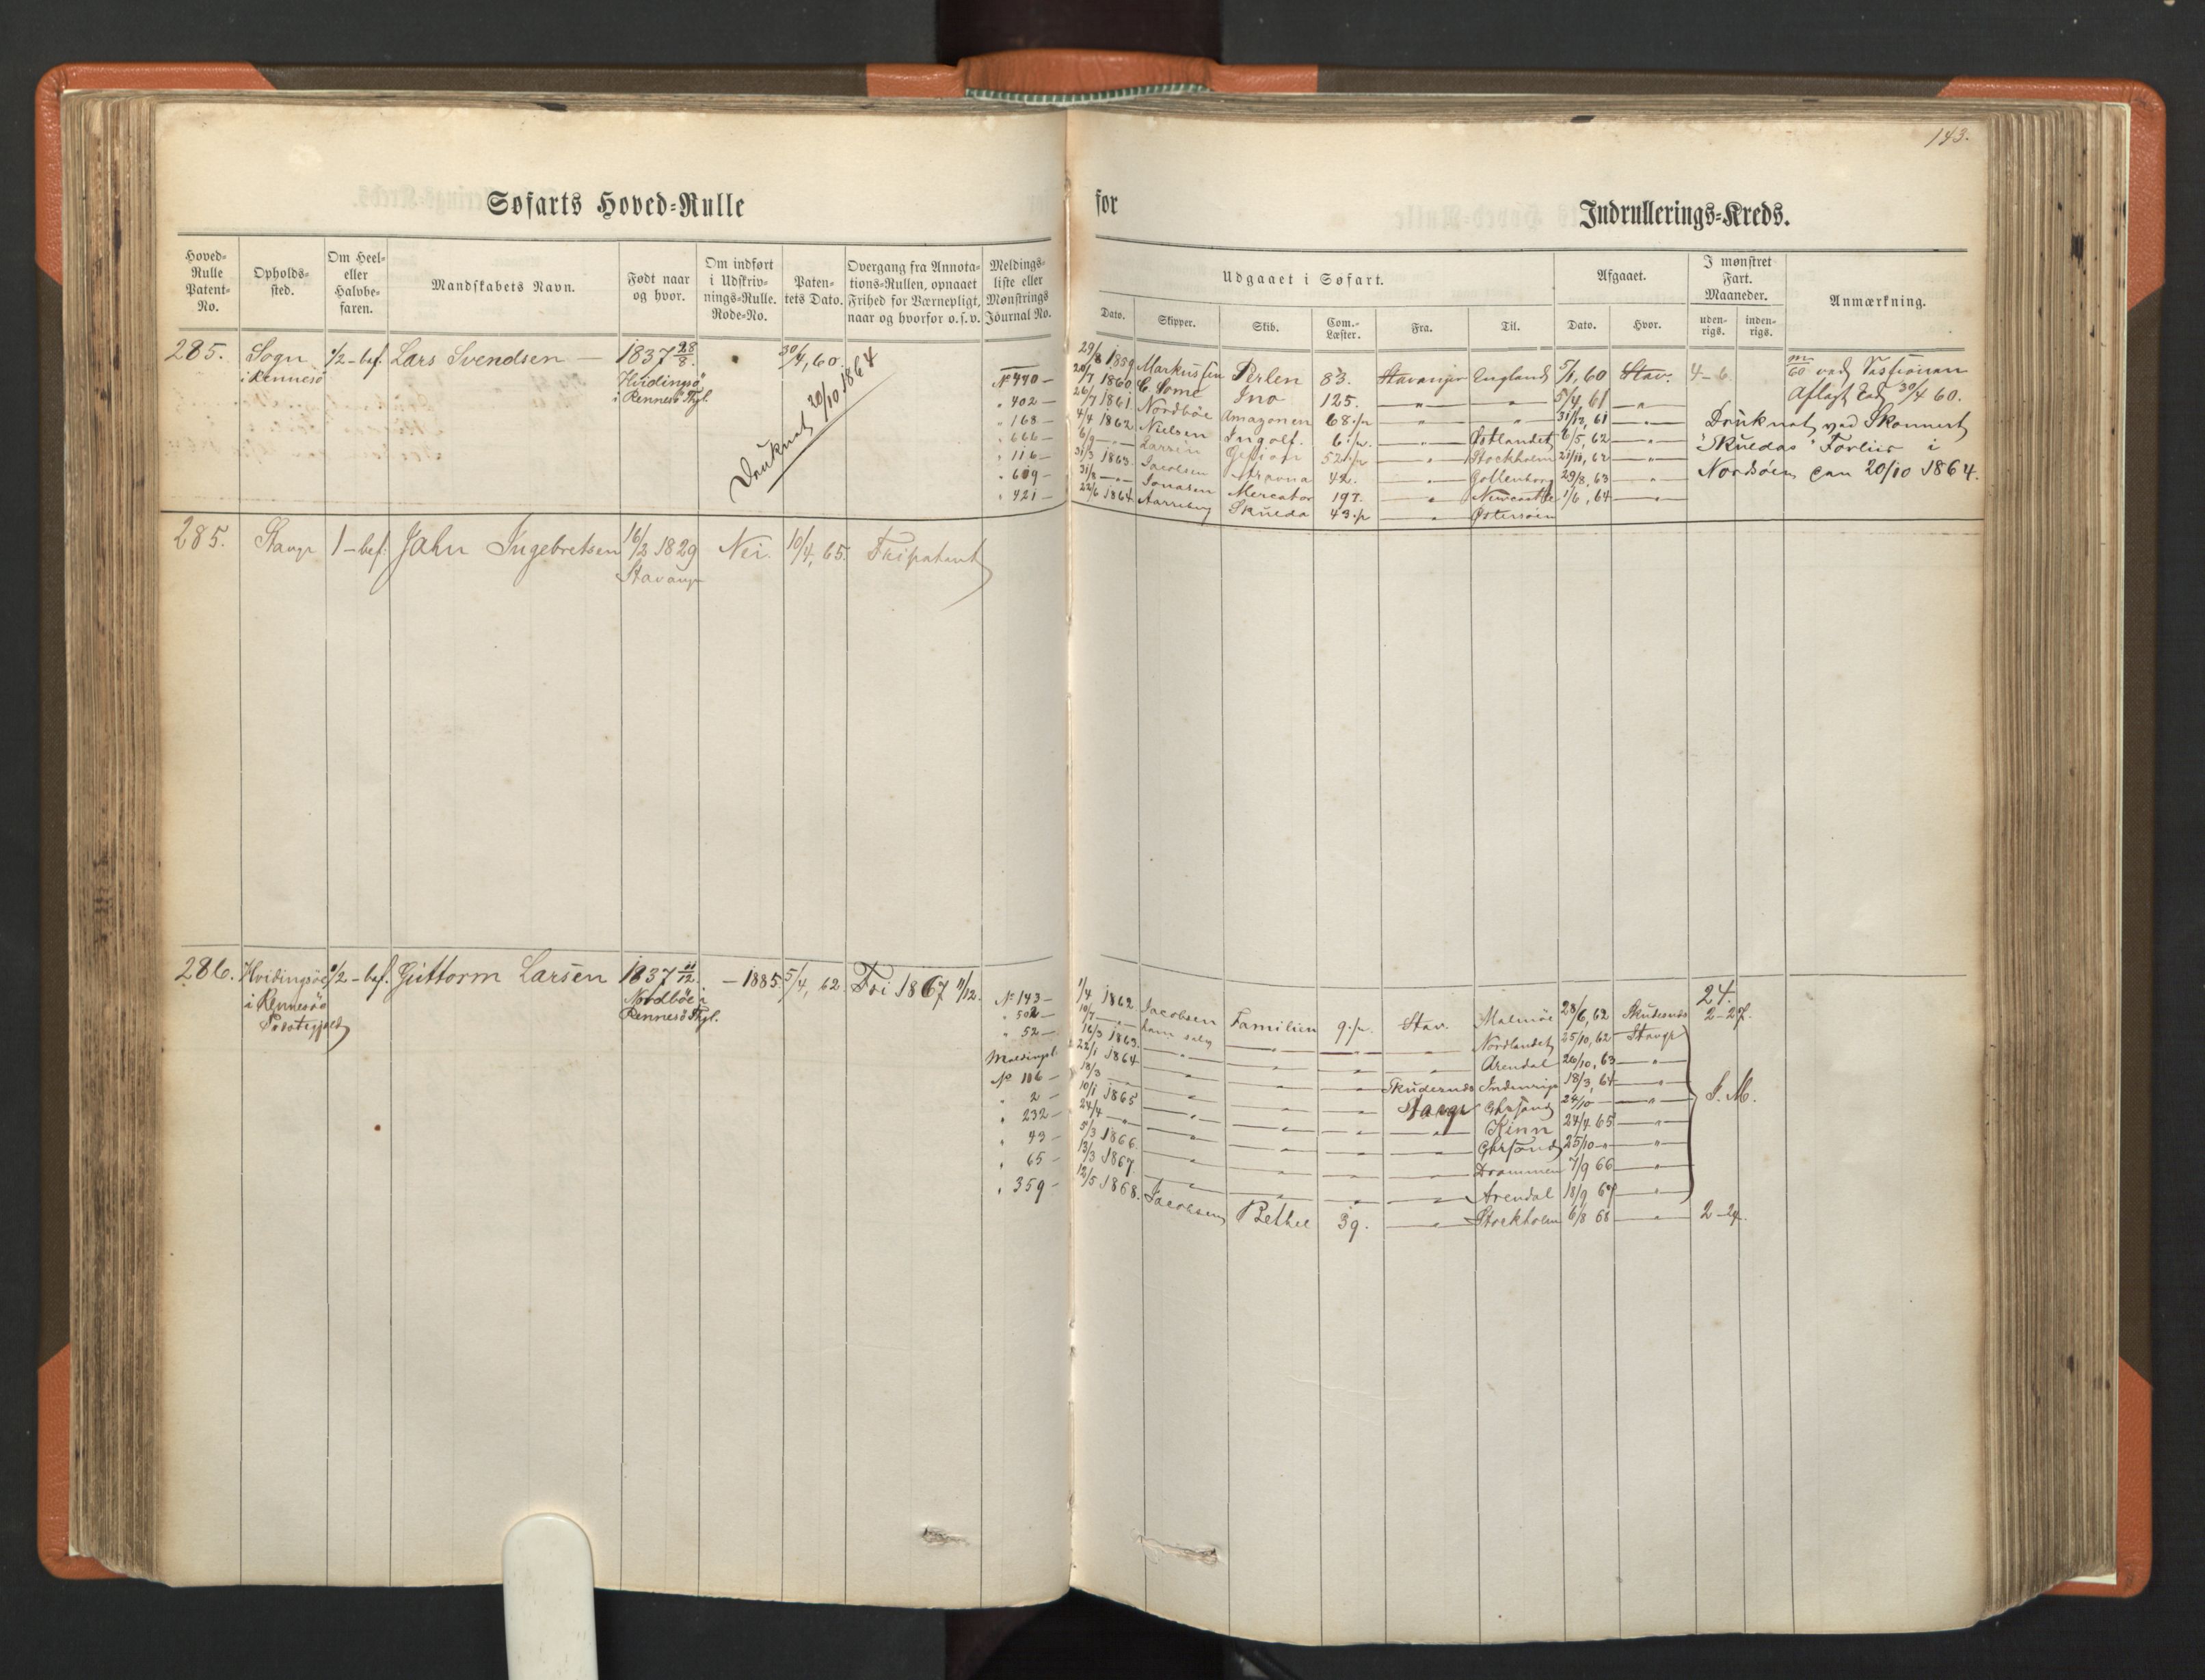 143.
Søfarts Hoved-Rulle for Indrullerings-Kreds.
Hoved-Rulle Patent-No.
Opholds-sted.
Om Heel- eller Halvbe-faren.
Mandskabets Navn.
Født naar og hvor.
Om indført i Udskriv-nings-Rulle. Rode-No.
Paten-tets Dato.
Overgang fra Annota-tions-Rullen, opnaaet Frihed for Værnepligt, naar og hvorfor o.s.v.
Meldings-liste eller Mønstrings Journal No.
Udgaaet i Søfart.
Dato. Skipper. Skib. Com.-Læster. Fra. Til.
Afgaaet.
Dato. Hvor.
I mønstret Fart. Maaneder.
uden-rigs. inden-rigs.
Anmærkning.
285. Sogn 1/2-bef. Lars Svendsen — 1837 28/8. 30/4, 60.
i Rennesø Hvidingsö
i Rennesö Thgl.
Druknet 20/10 1864
29/8 1859 Markussen Perlen 83. Stavanger England 5/1, 60 Stav. 4-6
No 440 — 20/7 1860 C. Some Ino 125. — " — " 5/4 61 — " —
" 402 — 26/7 1861 Nordböe Amazonen 68.½ — " — " 31/12, 61 — " —
" 168 — 4/4 1862 Nielsen Ingolf. 6.½. — " — Østlandet 6/5, 62 — " —
" 666 — 6/9 — " — Larsen Gefion 52.½ — " — Stockholm
" 116 — 31/3 1863. Jacobsen 42. — " — Gottenborg 29/8, 63 "
" 609 — 31/8 — " — Jonasen Mercator 197. " Newcastle 1/6, 64 — " —
" 421 — 22/6 1864 Skulda 43.½ — " — Østersöen
ved Sessionen
Aflagt Eed 30/4 60.
Druknet ved Skonnert
"Skuldas" Forliis i
Nordsøen den 20/10 1864.
285. Stavgr 1-bef. Jahn Ingebretsen 16/2 1829 Nei. 10/4, 65. Fripatent
Stavanger
286. Hvidingsöe 1/2-bef. Guttorm Larsen 1837 11/12. — 1885. 5/4, 62. Fri 1867 11/12.
i Rennesöe Nordböe i
Præstegjeld Rennesö Thgl.
24.
No 143 — 1/4 1862 Jacobsen Familien 9.½. Stav. Malmöe 28/6, 62 Skudesnæs 2-27.
" 502 — 10/7 — " — ham selv — " — — " — — " — Nordlandet 25/10, 62 Stavgr
" 52 — 16/3 1863. — " — — " — — " — Arendal 26/10, 63 — " —
Meldingsl. 22/1 1864 — " — — " — — " — Skudesnæs Indenrigs 18/3, 64 — " —
No 106 — 18/3 — " — — " — — " — Stavgr Chrsand 24/10 — — " —
" 2 — 10/1 1865 — " — — " — — " — — " — Kinn 24/4 65 — " —
" 232 — 24/4 — " — — " — — " — — " — Chrsand 25/10 — " — — " —
" 43 — 5/3 1866. — " — — " — — " — — " — Drammen 7/9 66 — " —
" 65 — 13/3 1867 — " — — " — — " — — " — Arendal 18/9 67 — " —
" 359 — 12/5 1868. Jacobsen Bethel 39. — " — Stockholm 6/8 68 — " — 2-24.